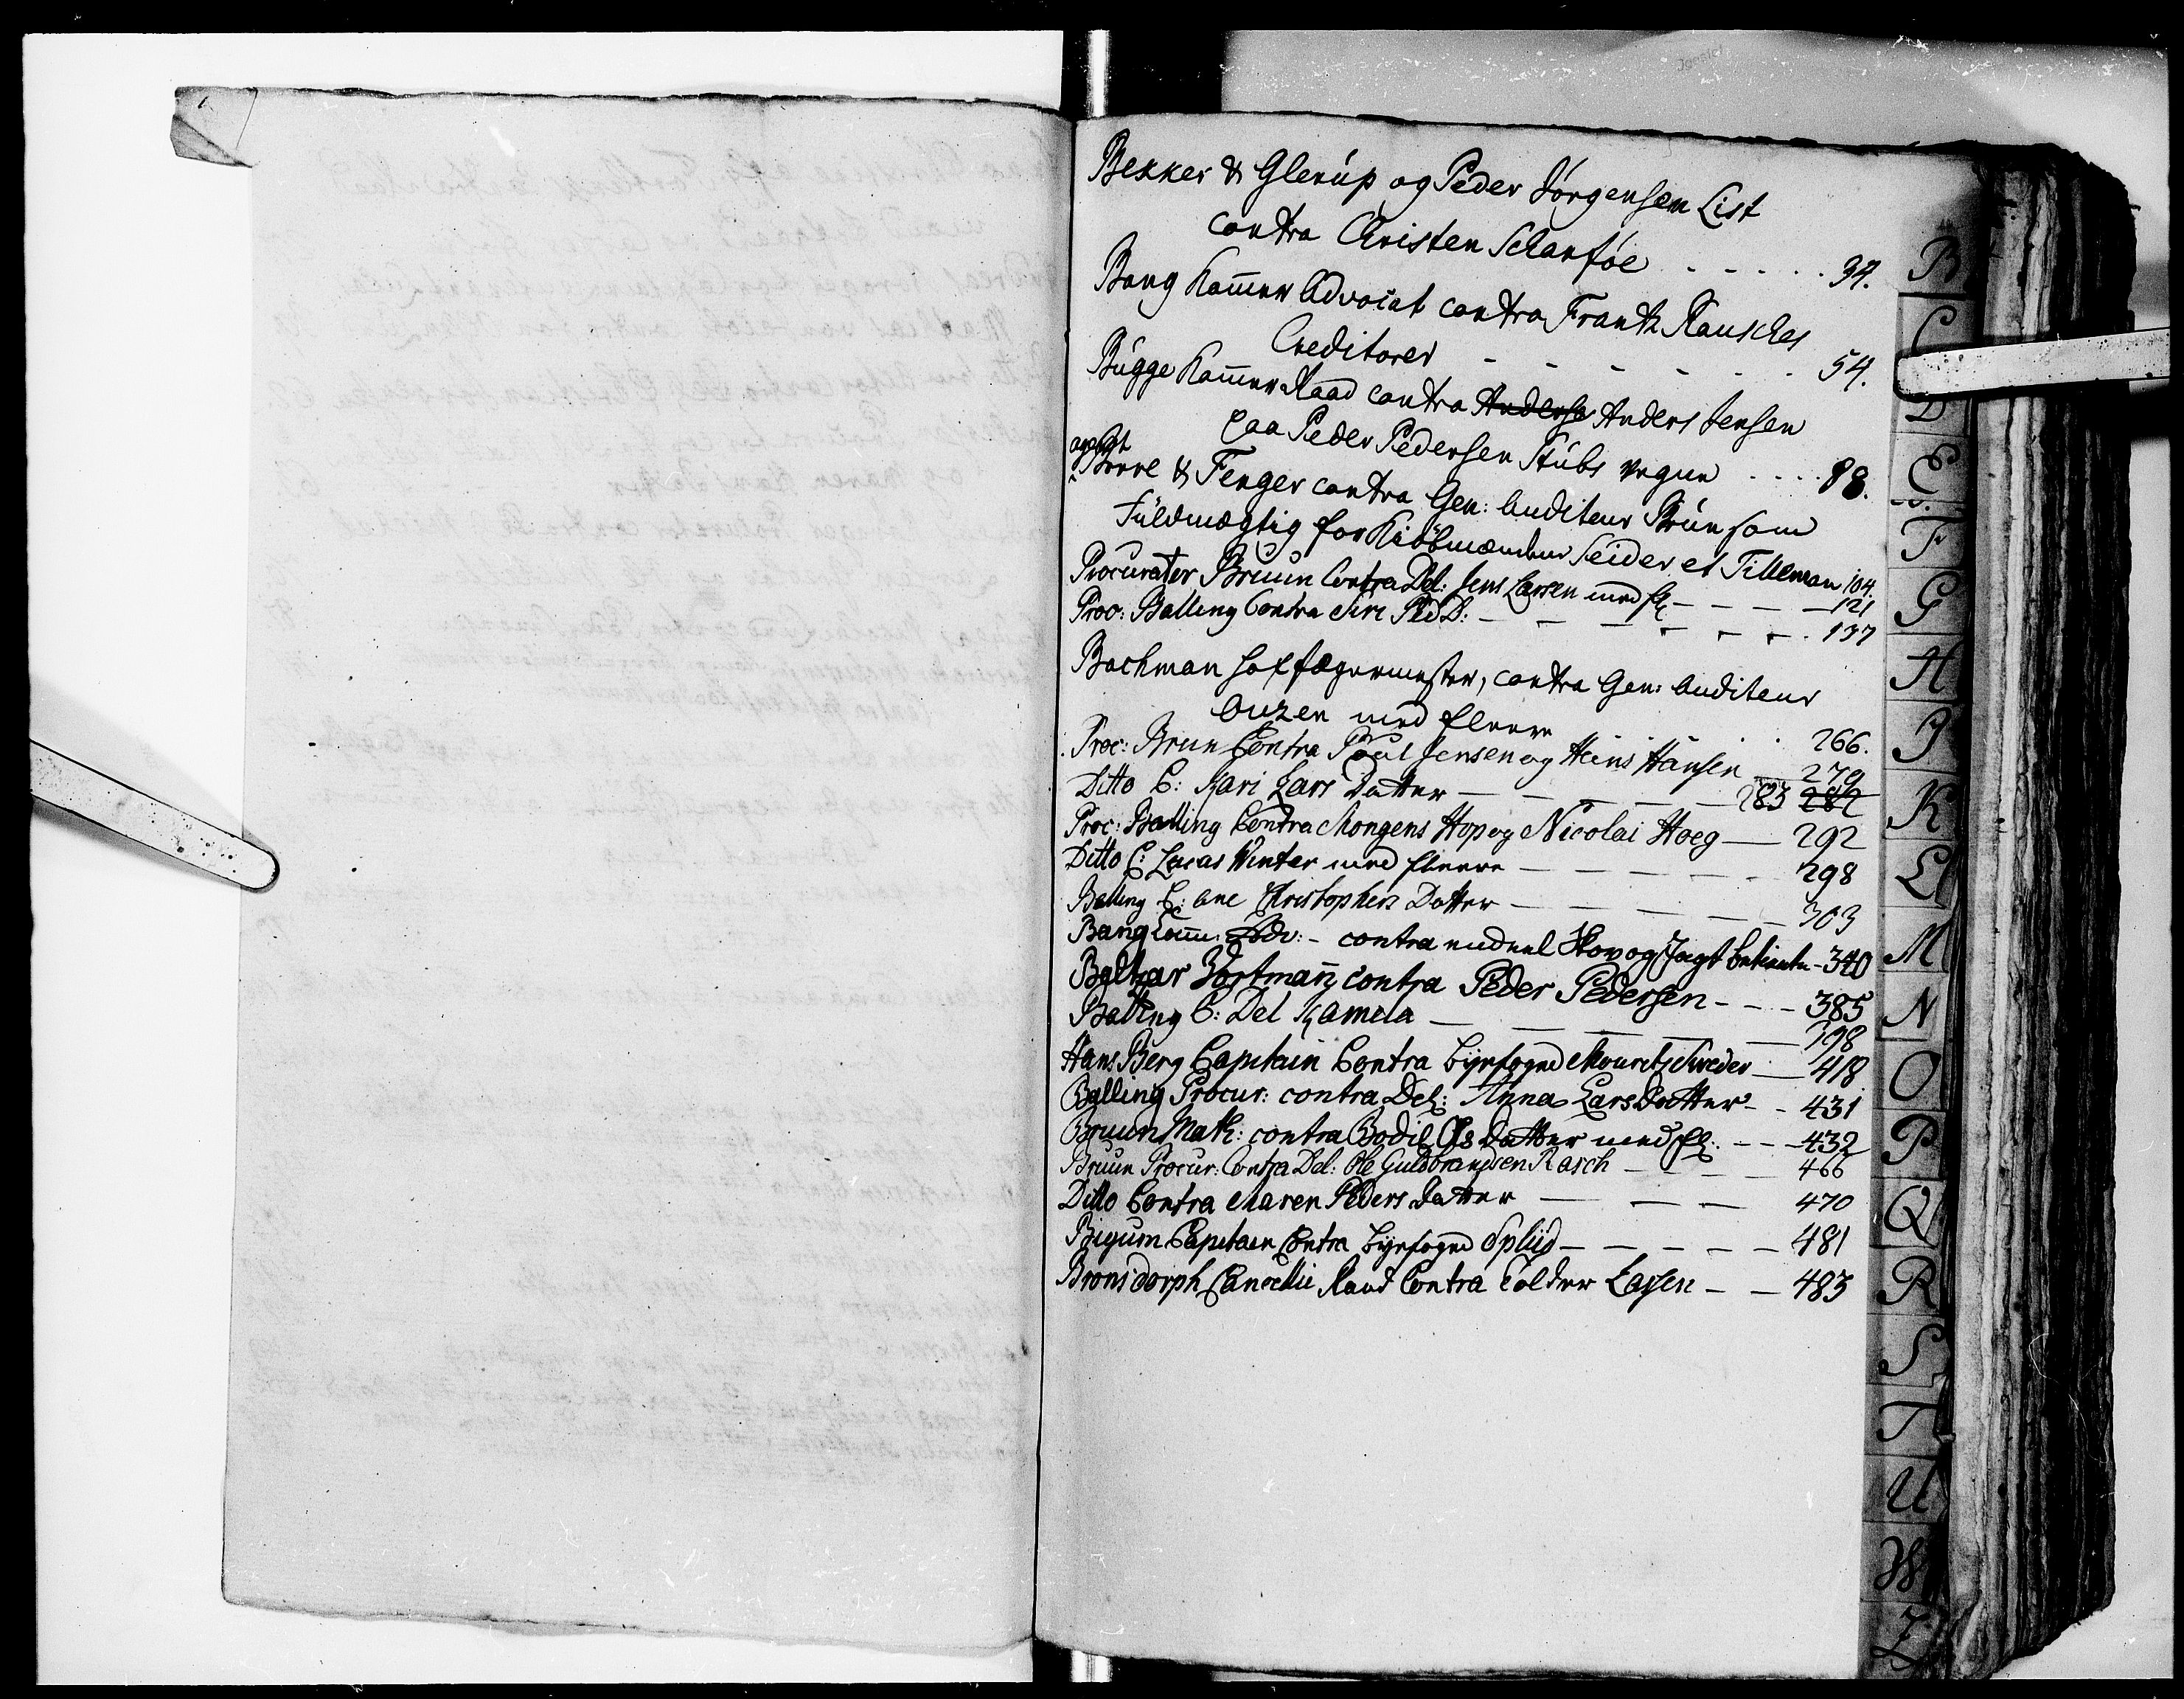 Bekker & Glerúp og Peder Jörgensen List
contra Christen Scharföe . . . . . 34.
Bang Kammer Advocat contra Frantz Rausches
Creditorer - - - - - - 54.
Búgge Kammer Raad contra Anders Jensen
paa Peder Pedersen Stúbs vegne . . . . 88.
& Fenger contra Gen: Auditeur Brún som
Fúldmægtig for Kiöbmændene Seider et Tilleman 104.
Procurator Bruun Contra Del: Jens Larsen med fl - - - - 121
Proc: Balling Contra Siri Ped D: - - - - - - 137
Bachman Hof Jægermester, contra Gen: Auditeur
med fleere 266.
Proc: Brun Contra Poul Jensen og Heins Hansen - 279
Ditto C: Kari Lars Datter - - - - - 283 282
Proc: Balling Contra Mongens Hop og Nicolai Hoeg - 292
Ditto C: Lucas Winter med fleere - - - - - 298
Balling C: Ane Christophers Datter - - - - - 303
Bang Cam: Adv: - contra endeel Skov og Jagt betiente - 340
Baltzar Wortmañ contra Peder Pedersen - - - 385
Balling C: Del Kamela - - - - - 398
Hans Berg Capitain Contra Byefoged Mouritz Schrøder - 418
Balling Procur: contra Del: Anna Lars Datter - - 431
Bruun Math: contra Bodil Ols Datter med fl: - - - 432
Bruun Procur: Contra Del: Ole Guldbrandsen Rasch - - - 466
Ditto Contra Maren Peders Datter - - - 470
Bigum Capitaen Contra Byefoged Spliid - - - - - 481
Bronsdorph Cancellie Raad Contra Tolder Lassen - - 483
B
C
D
E
F
G
H
I
K
L
M
N
O
P
Q
R
S
T
U
W
Z